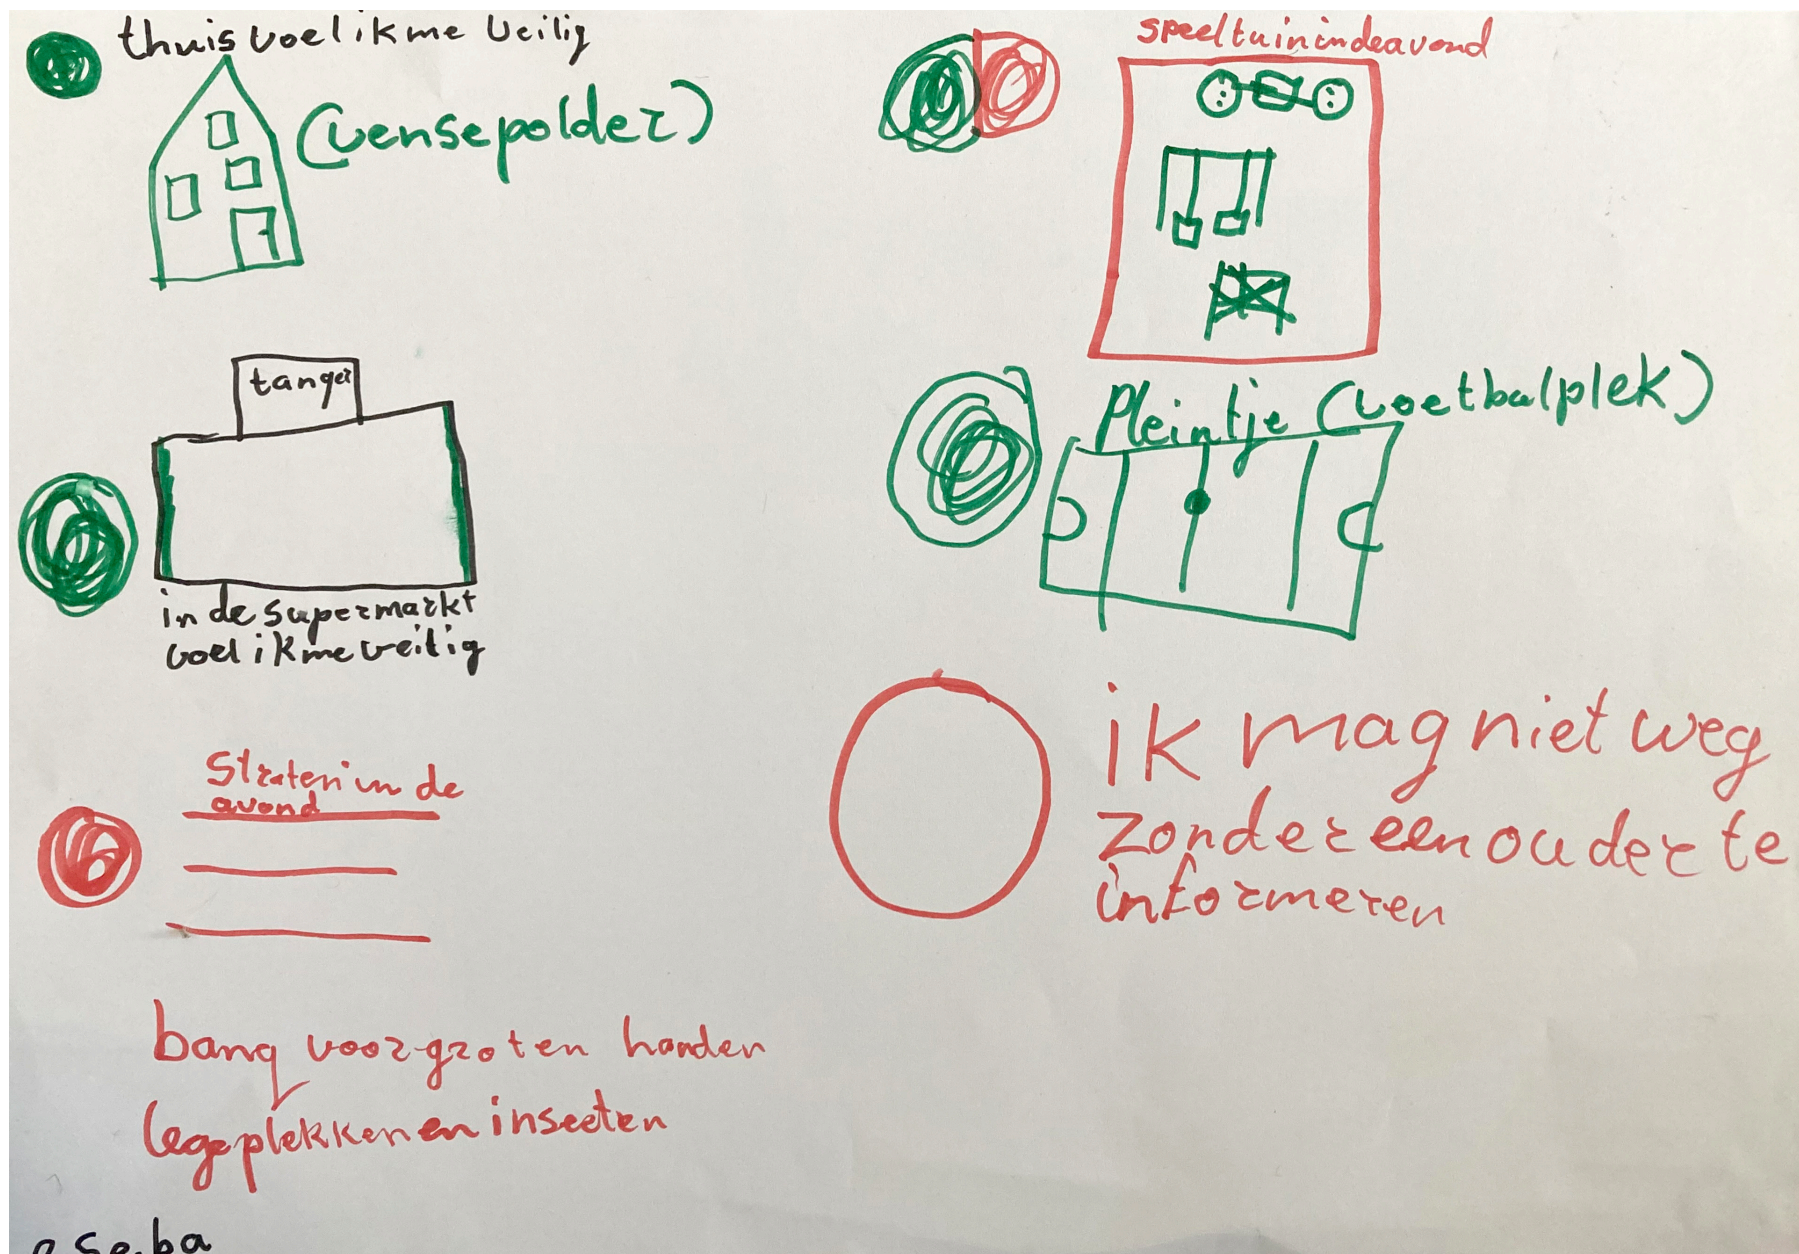 thuis voel ik me veilig
(vensepolder)
tanger
in de supermarkt
voel ik me veilig
Straten in de
avond
bang voor groten honden
lege plekken en insecten
speeltuin in de avond
Pleintje (voetbalplek)
ik mag niet weg
zonder een ouder te
informeren